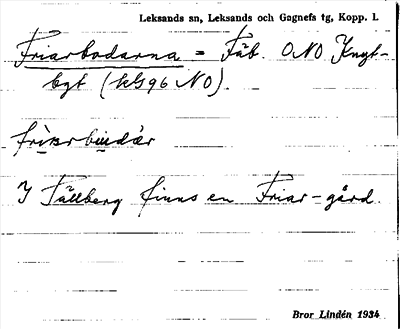 Leksands sn, Leksands och Gagnefs tg, Kopp. l.
Friarbodarna = Fäb. ONO Knyt-
bgt (kG96 NO).
I Tällberg finns en Friar-gård.
Bror Lindén 1934